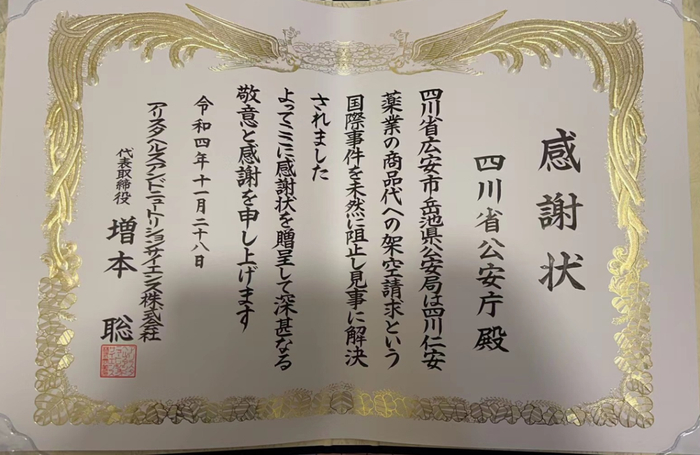 感謝状
四川省公安庁 殿
四川省広安市岳池県公安局は四川仁安
薬業の商品代への架空請求という
国際事件を未然に阻止し見事に解決
されました
よってここに感謝状を贈呈して深甚なる
敬意と感謝を申し上げます
令和四年十一月二十八日
アリスタヘルスアンドニュートリションサイエンス株式会社
代表取締役 増本 聡